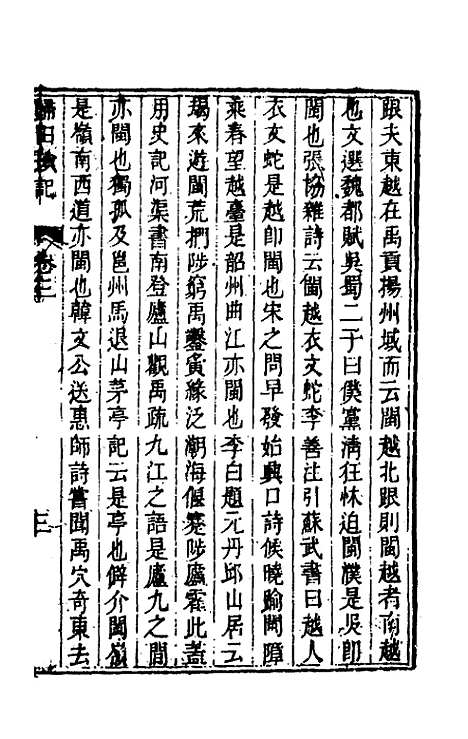 跟夫東越在禹貢揚州域而云閩越北跟則閩越者南越
也文選魏都賦吳蜀二子曰僕黨清狂怵迫閩濮是吳卽
閩也張協雜詩云閩越衣文蛇李善注引蘇武書曰越人
衣文蛇是越卽閩也宋之問早發始興口詩候曉踰閩障
乘春望越臺是韶州曲江亦閩也李白題元丹邱山居云
朅來遊閩荒捫陟窮禹鑿夤緣泛潮海偃蹇陟廬霍此蓋
用史記河渠書南登廬山觀禹疏九江之語是廬九之間
亦閩也獨孤及邕州馬退山茅亭記云是亭也僻介閩嶺
是嶺南西道亦閩也韓文公送惠師詩嘗聞禹穴奇東去
歸田瑣記 卷三 三